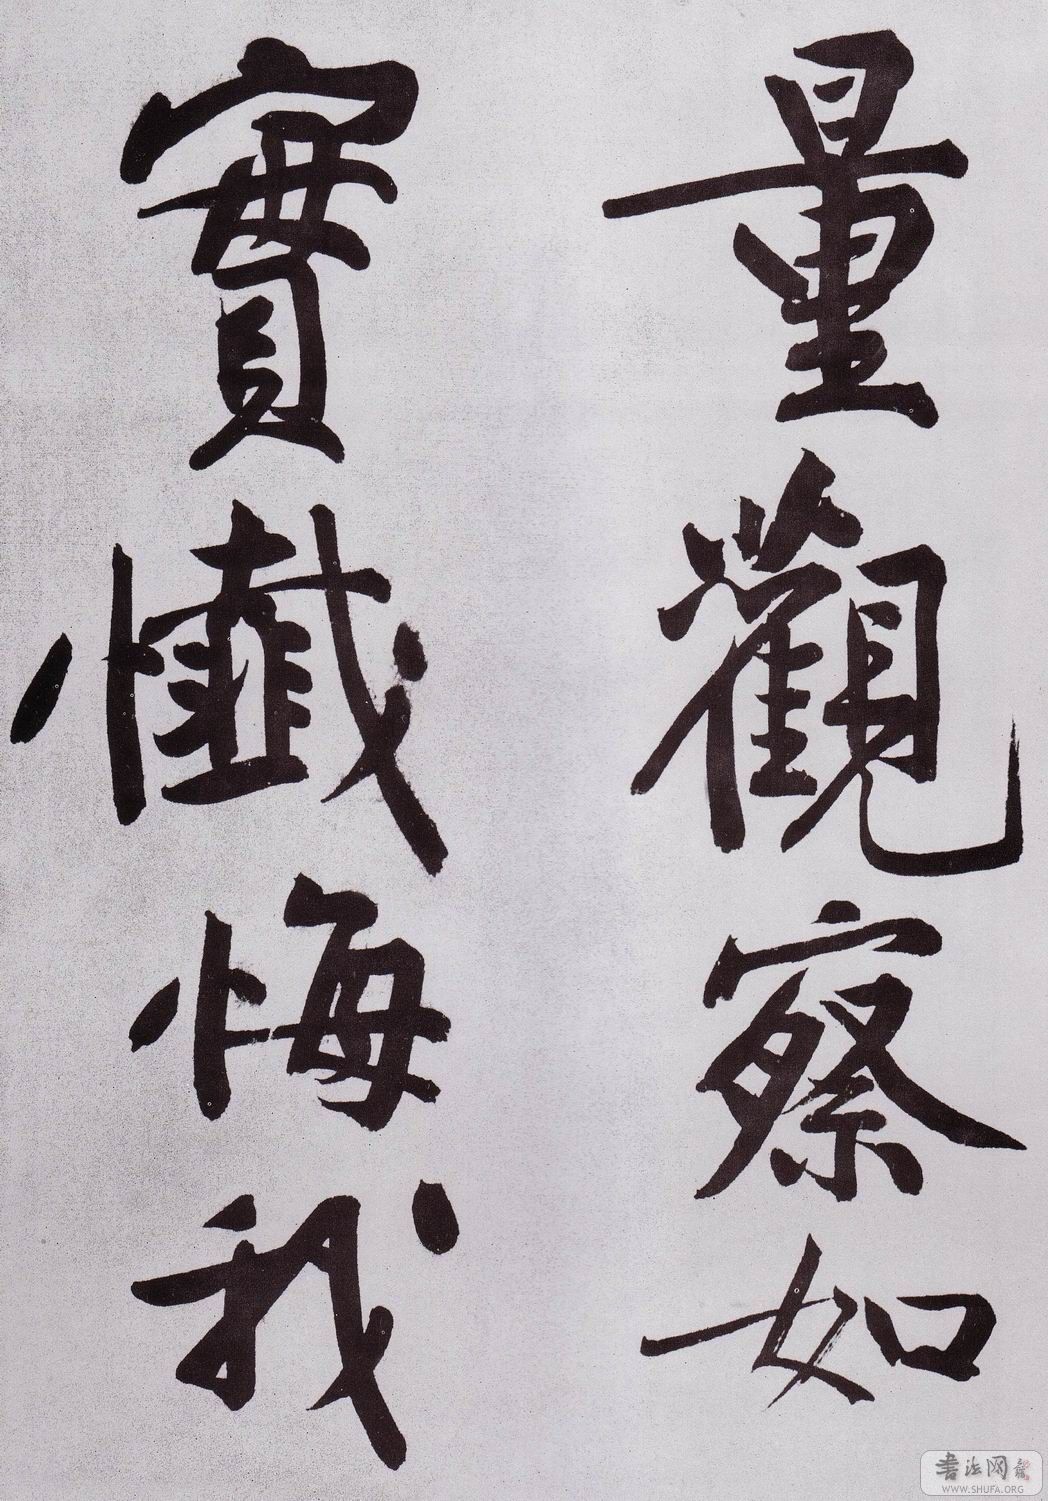 量觀察如
實懺悔我
書法网
WWW.SHUFA.ORG